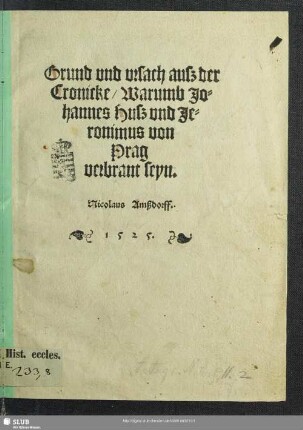 Grund vnd vrsach ausz der
Cronicke / Warumb Jo-
hannes Husz vnd Je-
ronimus von
Prag
verbrant seyn.
Nicolaus Amßdorff.
1525.
Hist. eccles.
E
233,8
SLUB